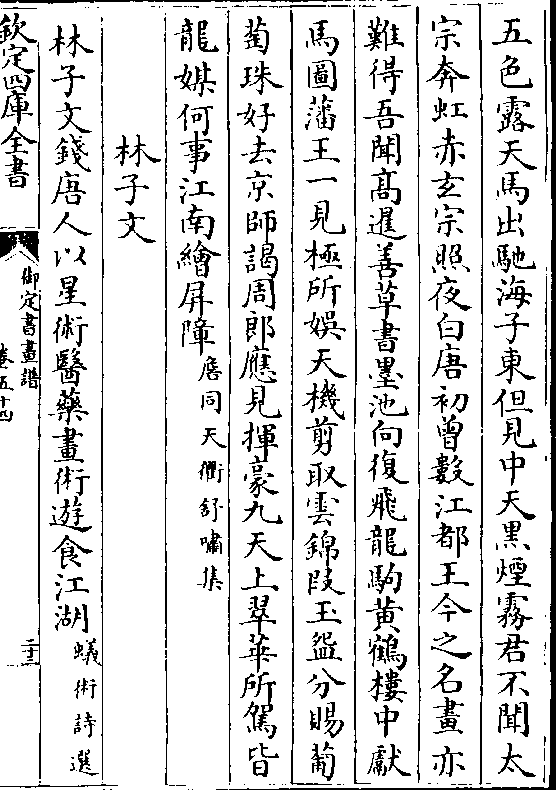 五色露天馬出馳海子東但見中天黑煙霧君不聞太
宗奔虹赤玄宗照夜白唐初曾數江都王今之名畫亦
難得吾聞高暹善草書墨池向復飛龍駒黄鶴樓中獻
馬圖藩王一見極所娛天機剪取雲錦段玉盌分賜葡
萄珠好去京師謁周郎應見揮豪九天上翠華所駕皆
龍媒何事江南繪屏障詹同天衢舒嘯集
林子文
林子文錢唐人以星術醫藥畫術遊食江湖蟻術詩選
欽定四庫全書
御定書畫譜
卷五十四
二十三